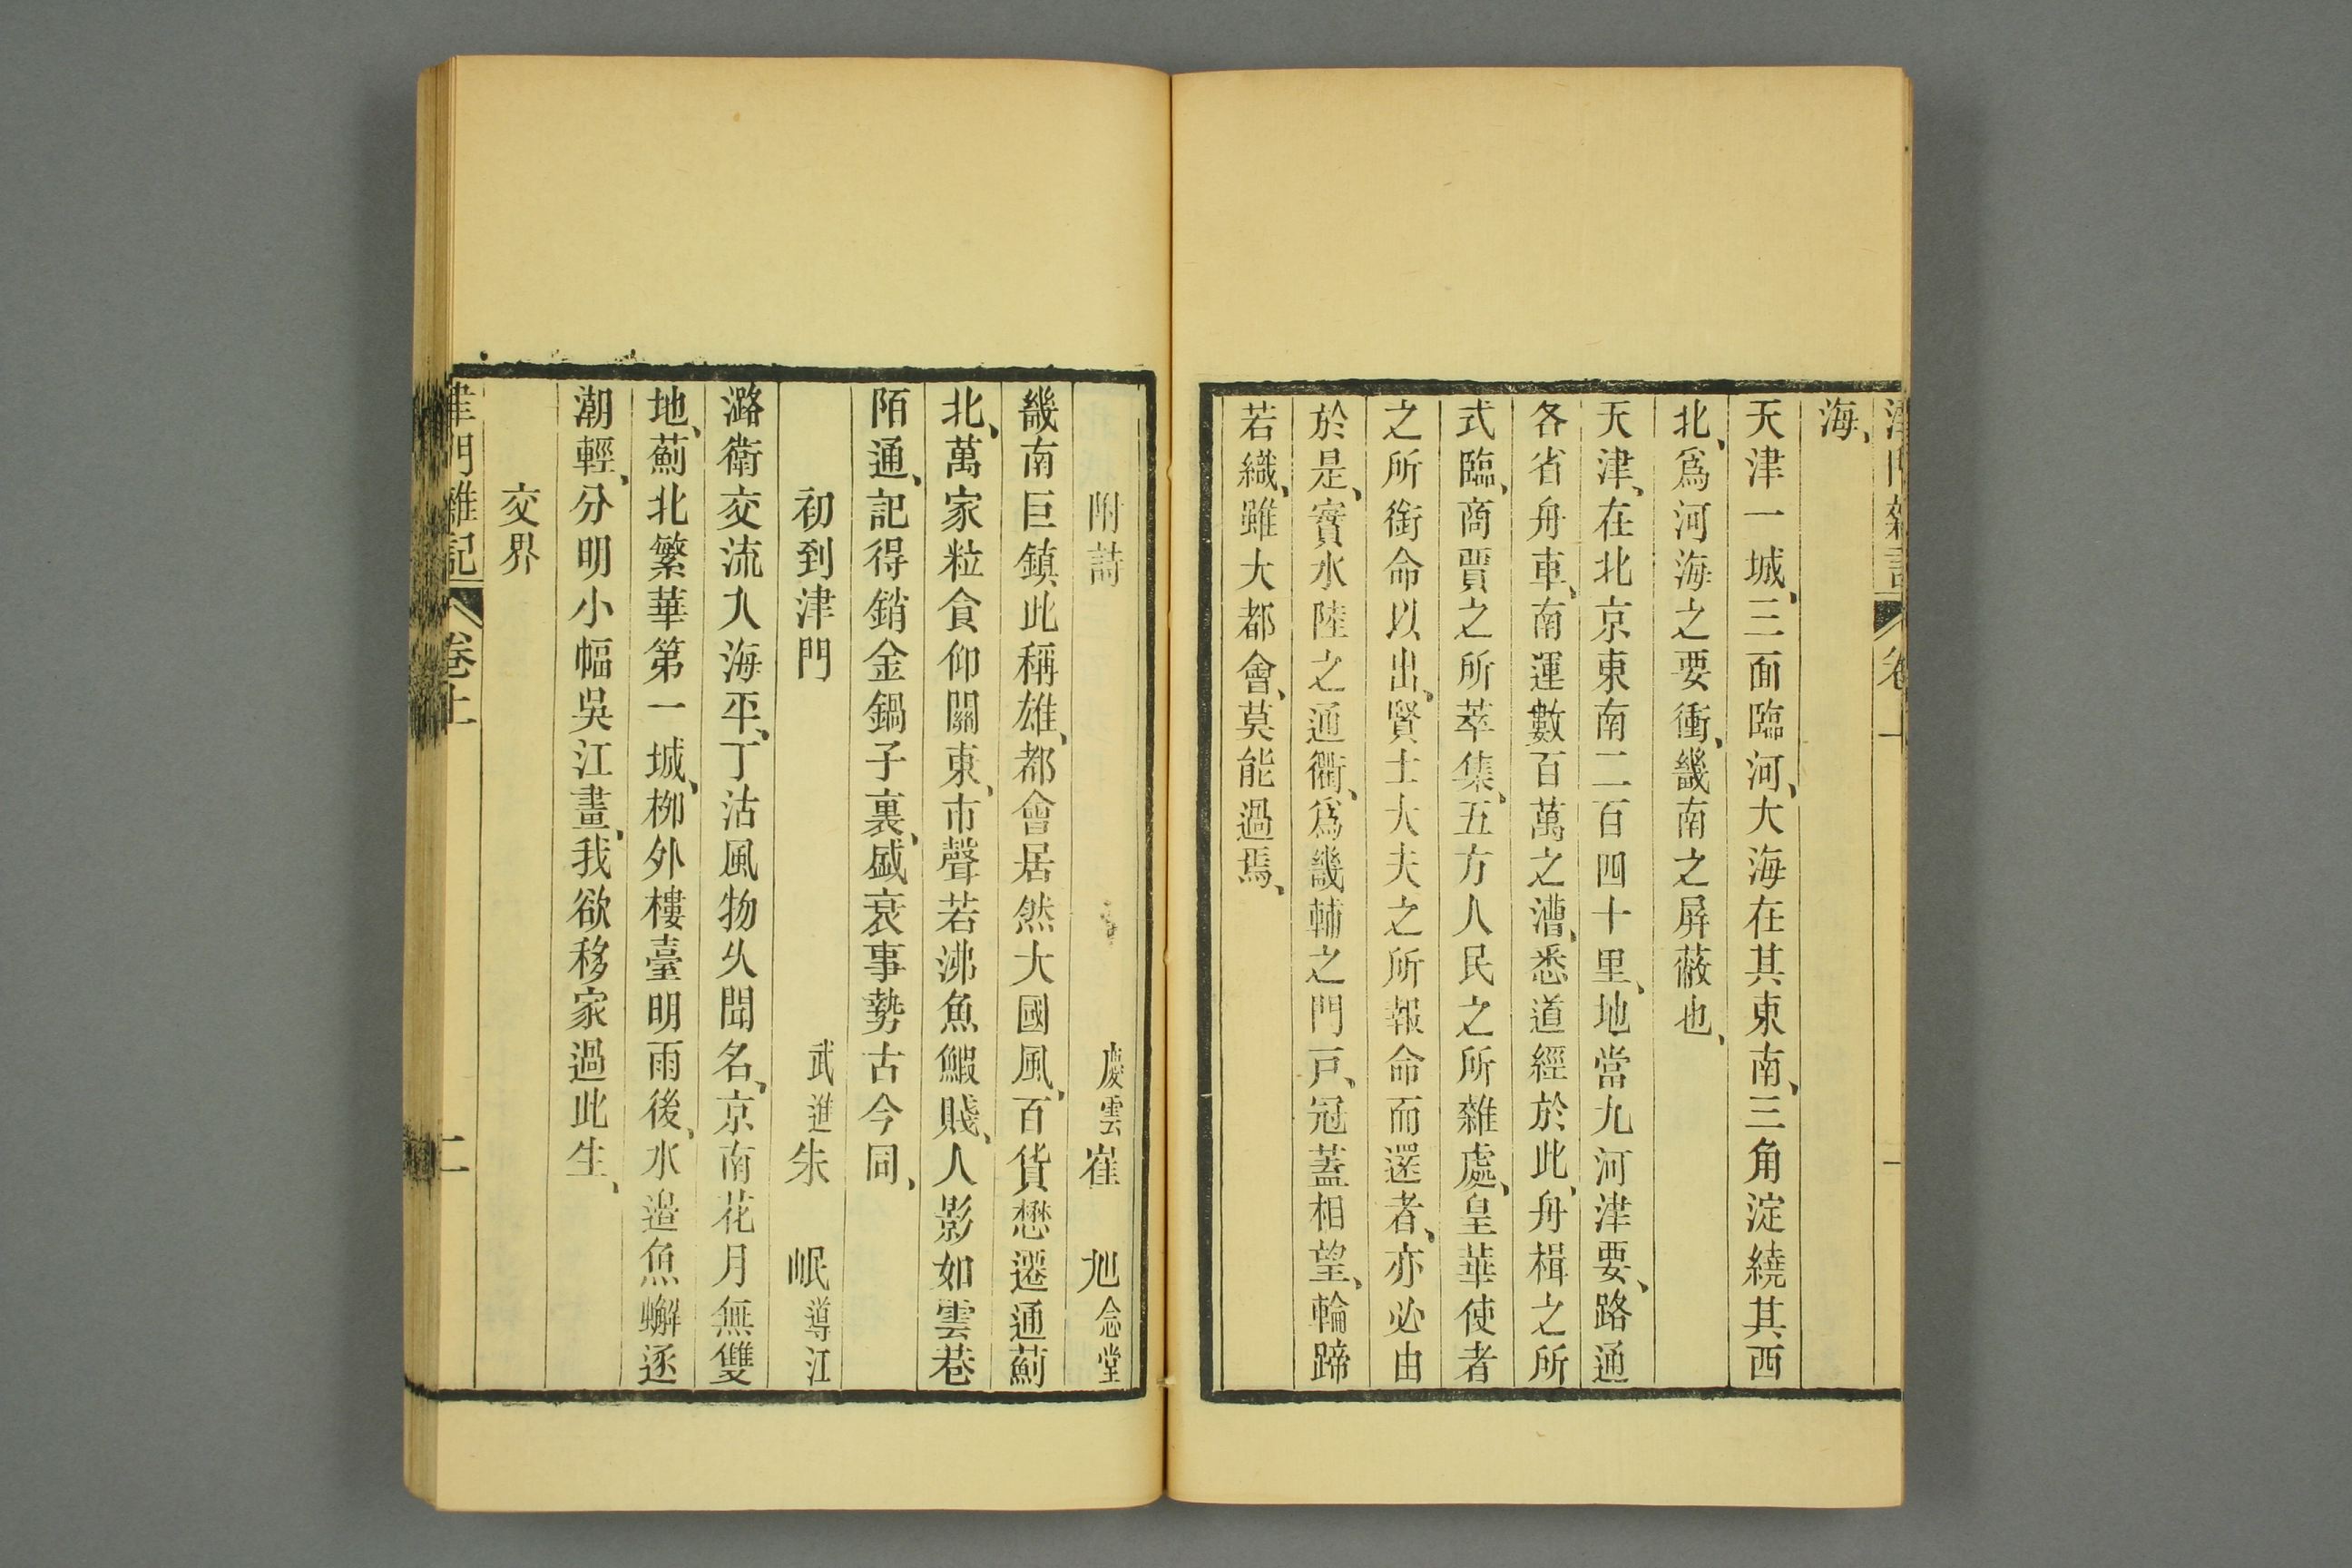 海、
天津一城、三面臨河、大海在其東南、三角淀繞其西
北、爲河海之要衝、畿南之屏蔽也、
天津、在北京東南二百四十里、地當九河津要、路通
各省舟車、南運數百萬之漕、悉道經於此、舟楫之所
式臨、商賈之所萃集、五方人民之所雜處、皇華使者
之所銜命以出、賢士大夫之所報命而還者、亦必由
於是、實水陸之通衢、爲畿輔之門戸、冠蓋相望、輪蹄
若織、雖大都會、莫能過焉、
附詩 慶雲崔 旭念堂
畿南巨鎮此稱雄、都會居然大國風、百貨懋遷通薊
北、萬家粒食仰關東、市聲若沸魚鰕賤、人影如雲巷
陌通、記得銷金鍋子裏、盛衰事勢古今同、
初到津門 武進朱 岷導江
潞衛交流入海平、丁沽風物久聞名、京南花月無雙
地、薊北繁華第一城、栁外樓臺明雨後、水邉魚蠏逐
潮輕、分明小幅吳江畫、我欲移家過此生、
交界
津門雜記 卷上 二